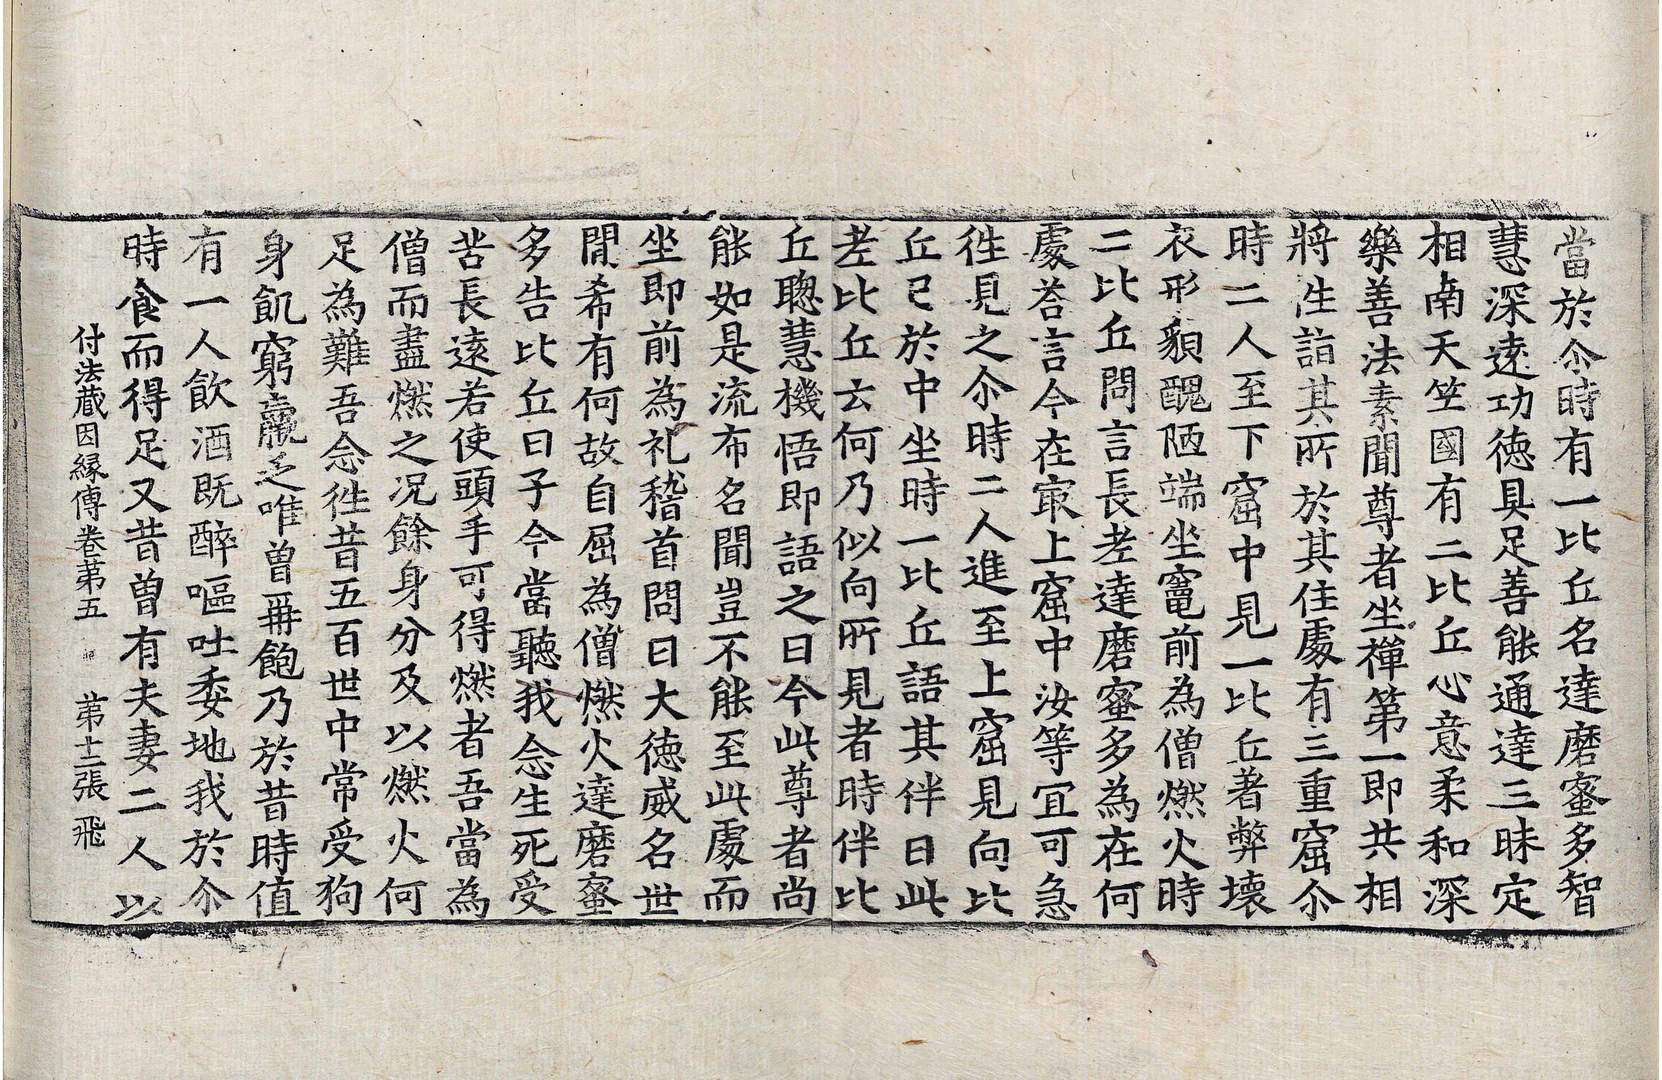 當於尒時有一比丘名達磨蜜多智
慧深遠功徳具足善能通達三昧定
相南天竺國有二比丘心意柔和深
樂善法素聞尊者坐禪第一即共相
將往詣其所於其住處有三重窟尒
時二人至下窟中見一比丘著弊壞
衣形貌醜陋端坐竃前為僧燃火時
二比丘問言長老達磨蜜多為在何
處荅言今在㝡上窟中汝等宜可急
徃見之尒時二人進至上窟見向比
丘已於中坐時一比丘語其伴曰此
老比丘云何乃似向所見者時伴比
丘聰慧機悟即語之曰今此尊者尚
能如是流布名聞豈不能至此處而
坐即前為礼稽首問曰大徳威名世
閒希有何故自屈為僧燃火達磨蜜
多告比丘曰子今當聽我念生死受
苦長遠若使頭手可得燃者吾當為
僧而盡燃之况餘身分及以燃火何
足為難吾念徃昔五百世中常受狗
身飢窮羸乏唯曽再飽乃於昔時值
有一人飲酒既醉嘔吐委地我於尒
時食而得足又昔曽有夫妻二人以
付法蔵因縁傳卷苐五 苐十二張 飛